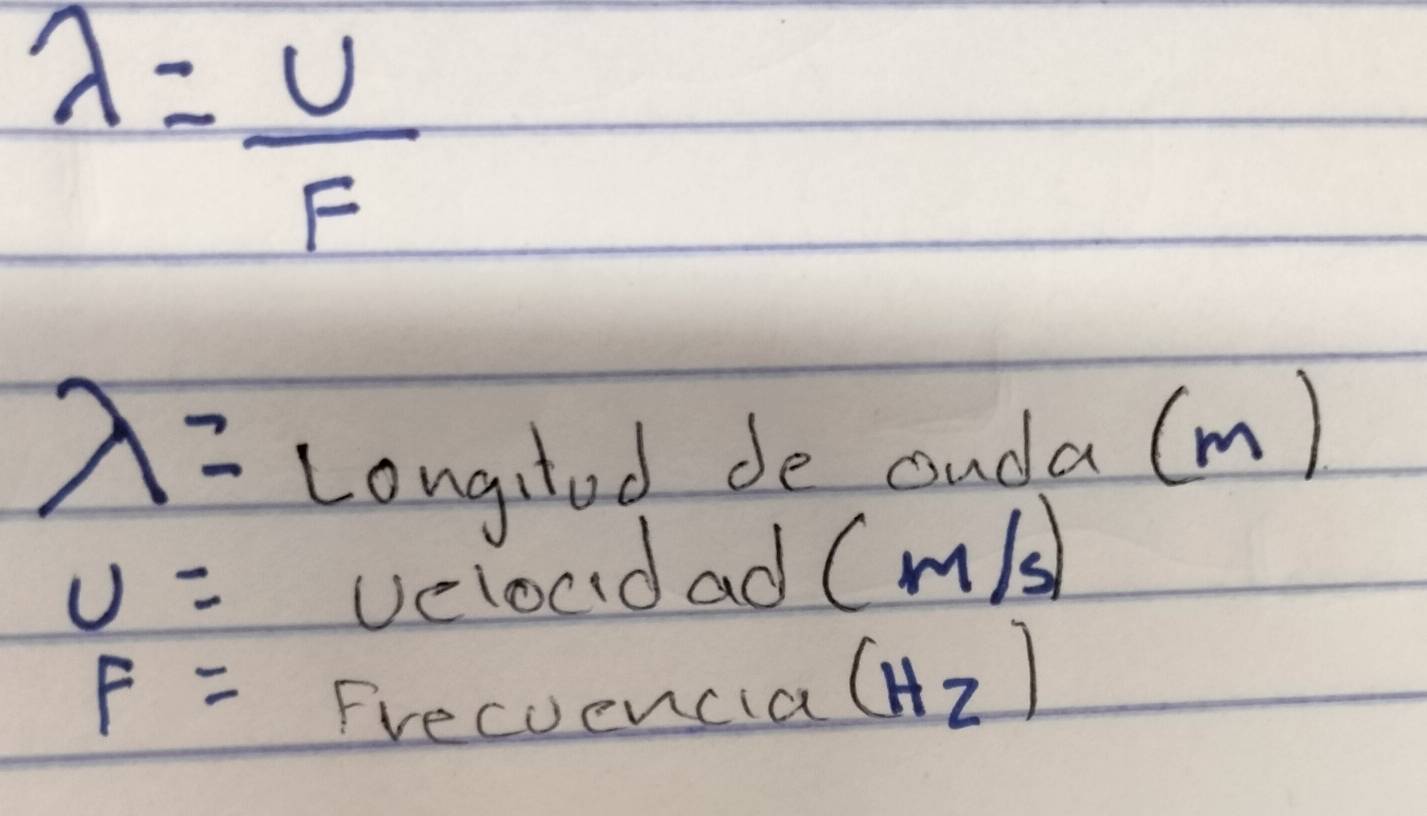 λ = U
F
λ = Longitud de onda (m)
U = Velocidad (m/s)
F = Frecuencia (Hz)